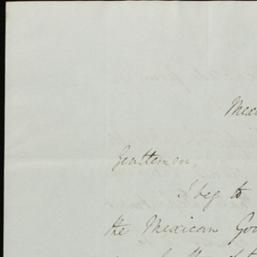 Mex
Gentlemen,
I beg to
the Mexican Gov